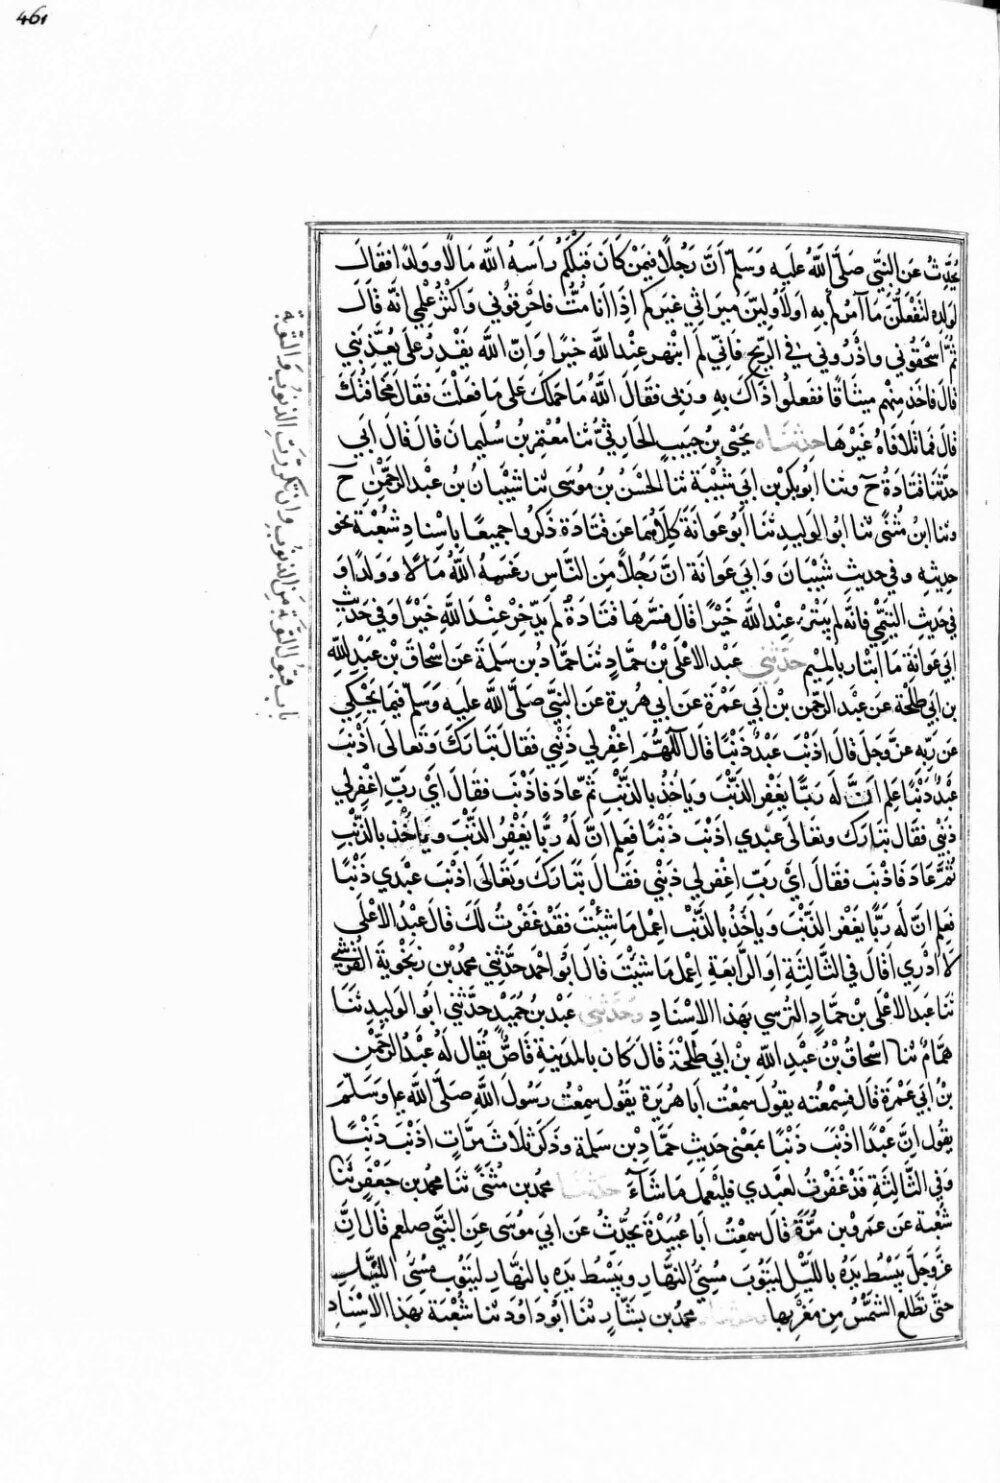 461
يُحَدِّثُ عَنِ النَّبِيِّ صَلَّى اللَّهُ عَلَيهِ وَسَلَّم أَنَّ رَجُلًا فِيمَنْ كَانَ قَبْلَكُم رَاسَهُ اللَّه مَالًا وَوَلَدًا فقالَ
لِوَلَدِهِ لَتَفْعَلُنَّ مَا آمُرُكُم بِهِ اَولَاُوَلِّيَنَّ مِيرَاثِي غَيرَكم اِذَا اَنَا مُتُّ فاحْرِقُوني وَاكْثَرُ عِلْمِي انَّهُ قَالَ
ثُمَّ اسْحَقُوني واذْرُوني في الرِّيحِ فَاِنِّي لم ابْتَهِر عِنْدَ اللَّه خَيرًا وَاِنَّ اللَّه يَقْدِرُ عَلَى يُعَذِّبَني
قالَ فَاخَذَ مِنْهُم مِيثَاقًا فَفَعَلُوا ذَاكَ بهِ وَرَبّي فَقَالَ اللَّهُ مَا حَمَلَكَ عَلَى مَا فَعَلْتَ فقالَ مَخَافَتُكَ
قالَ فَمَا تَلَافَاهُ غَيْرُهَا حدثناه يَحْيَى بنُ حَبِيبٍ الحَارِثيُّ ثنا مُعْتَمِرُ بنُ سُلَيمانَ قَالَ قَالَ اَبي
حَدَّثَنَا قَتَادَةُ ح وثنا ابُو بَكْرِ بن ابي شَيْبَةَ ثنا الحَسَنُ بنُ مُوسَى ثنا شَيْبَانُ بنُ عَبْدِ الرَّحْمٰنِ ح
وثنا ابنُ مُثَنًّى ثنا ابُو الوَلِيدِ ثنَا اَبُو عَوَانَةَ كِلَاهُما عن قَتَادَةَ ذَكَرُوا جَمِيعًا باسْنَادِ شُعْبَةَ نحو
حَدِيثِهِ وَفي حَدِيثِ شَيْبَانَ وَابي عَوَانَةَ انَّ رَجُلاً مِنَ النَّاسِ رَغَسَهُ اللَّهُ مَالًا وَوَلَدًا وَ
في حَدِيثِ التَّيْمِي فَانَّهُ لم يَبْتَئِرْ عِنْدَ اللَّه خَيْرًا قَالَ فَسَّرَهَا قَتَادَةُ لَم يَدَّخِرْ عِنْدَ اللَّهِ خَيْرًا وَفي حَدِيثِ
ابي عَوَانَةَ مَا ابْتَارَ بالمِيمِ حَدَّثَنِي عَبْدُ الاعْلَى بْنُ حَمَّادٍ ثنَا حَمَّادُ بن سَلَمَةَ عَنْ اسْحَاقَ بنِ عَبْدِ اللَّهِ
بن ابي طَلْحَة عَن عَبْدِ الرَّحْمنِ بْنِ اَبي عَمْرَةَ عَنْ ابي هُرَيرةَ عَنِ النَّبِيِّ صَلَّى اللَّهُ عَلَيهِ وَسَلَّم فيمَا يَحْكِي
عَنْ رَبِّهِ عَزَّ وَجَلَّ قَالَ اذْنَبَ عَبْدٌ ذَنْبًا قَالَ اللَّهُمَّ اغْفِرْ لي ذَنْبِي فقالَ تَبَارَكَ وَتَعالَى اذْنَبَ
عَبْدٌ ذَنْبًا عَلِمَ انَّ لَهُ رَبًّا يَغْفِرُ الذَّنْبَ وَيَاخُذُ بالذَّنْبِ ثمَّ عادَ فَاذْنَبَ فقالَ اَيْ رَبِّ اغْفِرْ لِي
ذَنْبِي فَقَالَ تَبَارَكَ وتَعَالَى عَبْدِي اذْنَبَ ذَنْبًا فَعَلِمَ انَّ لَهُ رَبًّا يَغْفِرُ الذَّنْبَ وَيَاخُذُ بالذَّنْبِ
ثُمَّ عَادَ فَاذْنَبَ فقالَ ايْ رَبِّ اغْفِرْ لي ذَنْبِي فَقَالَ تَبَارَكَ وَتَعَالَى اذْنَبَ عَبْدِي ذَنْبًا
فَعَلِمَ انَّ لَهُ رَبًّا يَغْفِرُ الذَّنْبَ وَيَاخُذُ بالذَّنْبِ اعْمَلْ مَا شِئْتَ فَقَدْ غَفَرْتُ لَكَ قالَ عَبْدُ الاعْلَى
لا ادْرِي اَقَالَ في الثَّالِثَةِ اَوِ الرَّابِعَةِ اِعْمَلْ مَا شِئْتَ قَالَ ابُو احْمَدَ حَدَّثَنِي محمدُ بْن زَنْجُوَيةَ القُرَشِي
ثنَا عَبدُ الاعْلَى بنُ حَمَّادٍ النَّرْسِي بهَذَا الاِسْنَادِ وحَدَّثَنِي عَبْدُ بنُ حُمَيْدٍ حَدَّثَنِي ابُو الوَلِيدِ ثنَا
هَمَّامٌ ثنا اسْحَاقُ بْنُ عَبْدِ اللَّهِ بْنِ ابي طَلْحَةَ قَالَ كانَ بالمَدِينَةِ قَاصٌّ يُقَالُ لَهُ عَبْدُ الرَّحْمٰنِ
بْنُ ابي عَمْرَةَ قَالَ فَسَمِعْتُه يَقُولُ سَمِعْتُ اَبَا هُرَيرَةَ يَقُولُ سَمِعْتُ رَسُولَ اللَّهِ صَلَّى اللَّه علَيه وَسَلَّمَ
يَقُولُ اِنَّ عَبْدًا اذْنَبَ ذَنْبًا بمَعْنَى حَدِيثِ حَمَّادِ بْنِ سَلَمَةَ وذَكَرَ ثَلَاثَ مَرَّاتٍ اذْنَبَ ذَنْبًا
وَفي الثَّالِثَةِ قَدْ غَفَرْتُ لِعَبْدِي فَلْيَعْمَلْ مَا شَآءَ حَدَّثَنَا محمدُ بن مُثَنًّى ثنا محمدُ بن جَعْفَرٍ ثنَا
شُعْبَة عَن عَمْرِو بن مُرَّةَ قَالَ سَمِعْتُ اَبَا عُبَيْدَةَ يحَدِّثُ عَن ابي مُوسَى عَنِ النَّبِيِّ صلعم قَالَ اِنَّ
عَزَّ وَجَلَّ يَبْسُطُ يَدَهُ باللَّيْلِ ليَتُوبَ مُسِيُ النَّهارِ وَيَبْسُطُ يَدَهُ بالنَّهَارِ ليَتُوبَ مُسِيُ اللَّيْلِ
حَتَّى تَطْلُعَ الشَّمْسُ مِنْ مَغْرِبِهَا محمدُ بن بَشَّارٍ ثنا ابُو دَاوُدَ ثنا شُعْبَة بهَذَا الاسْنَادِ
باب قبول التوبة من الذنوب وان تكررت الذنوب والتوبة